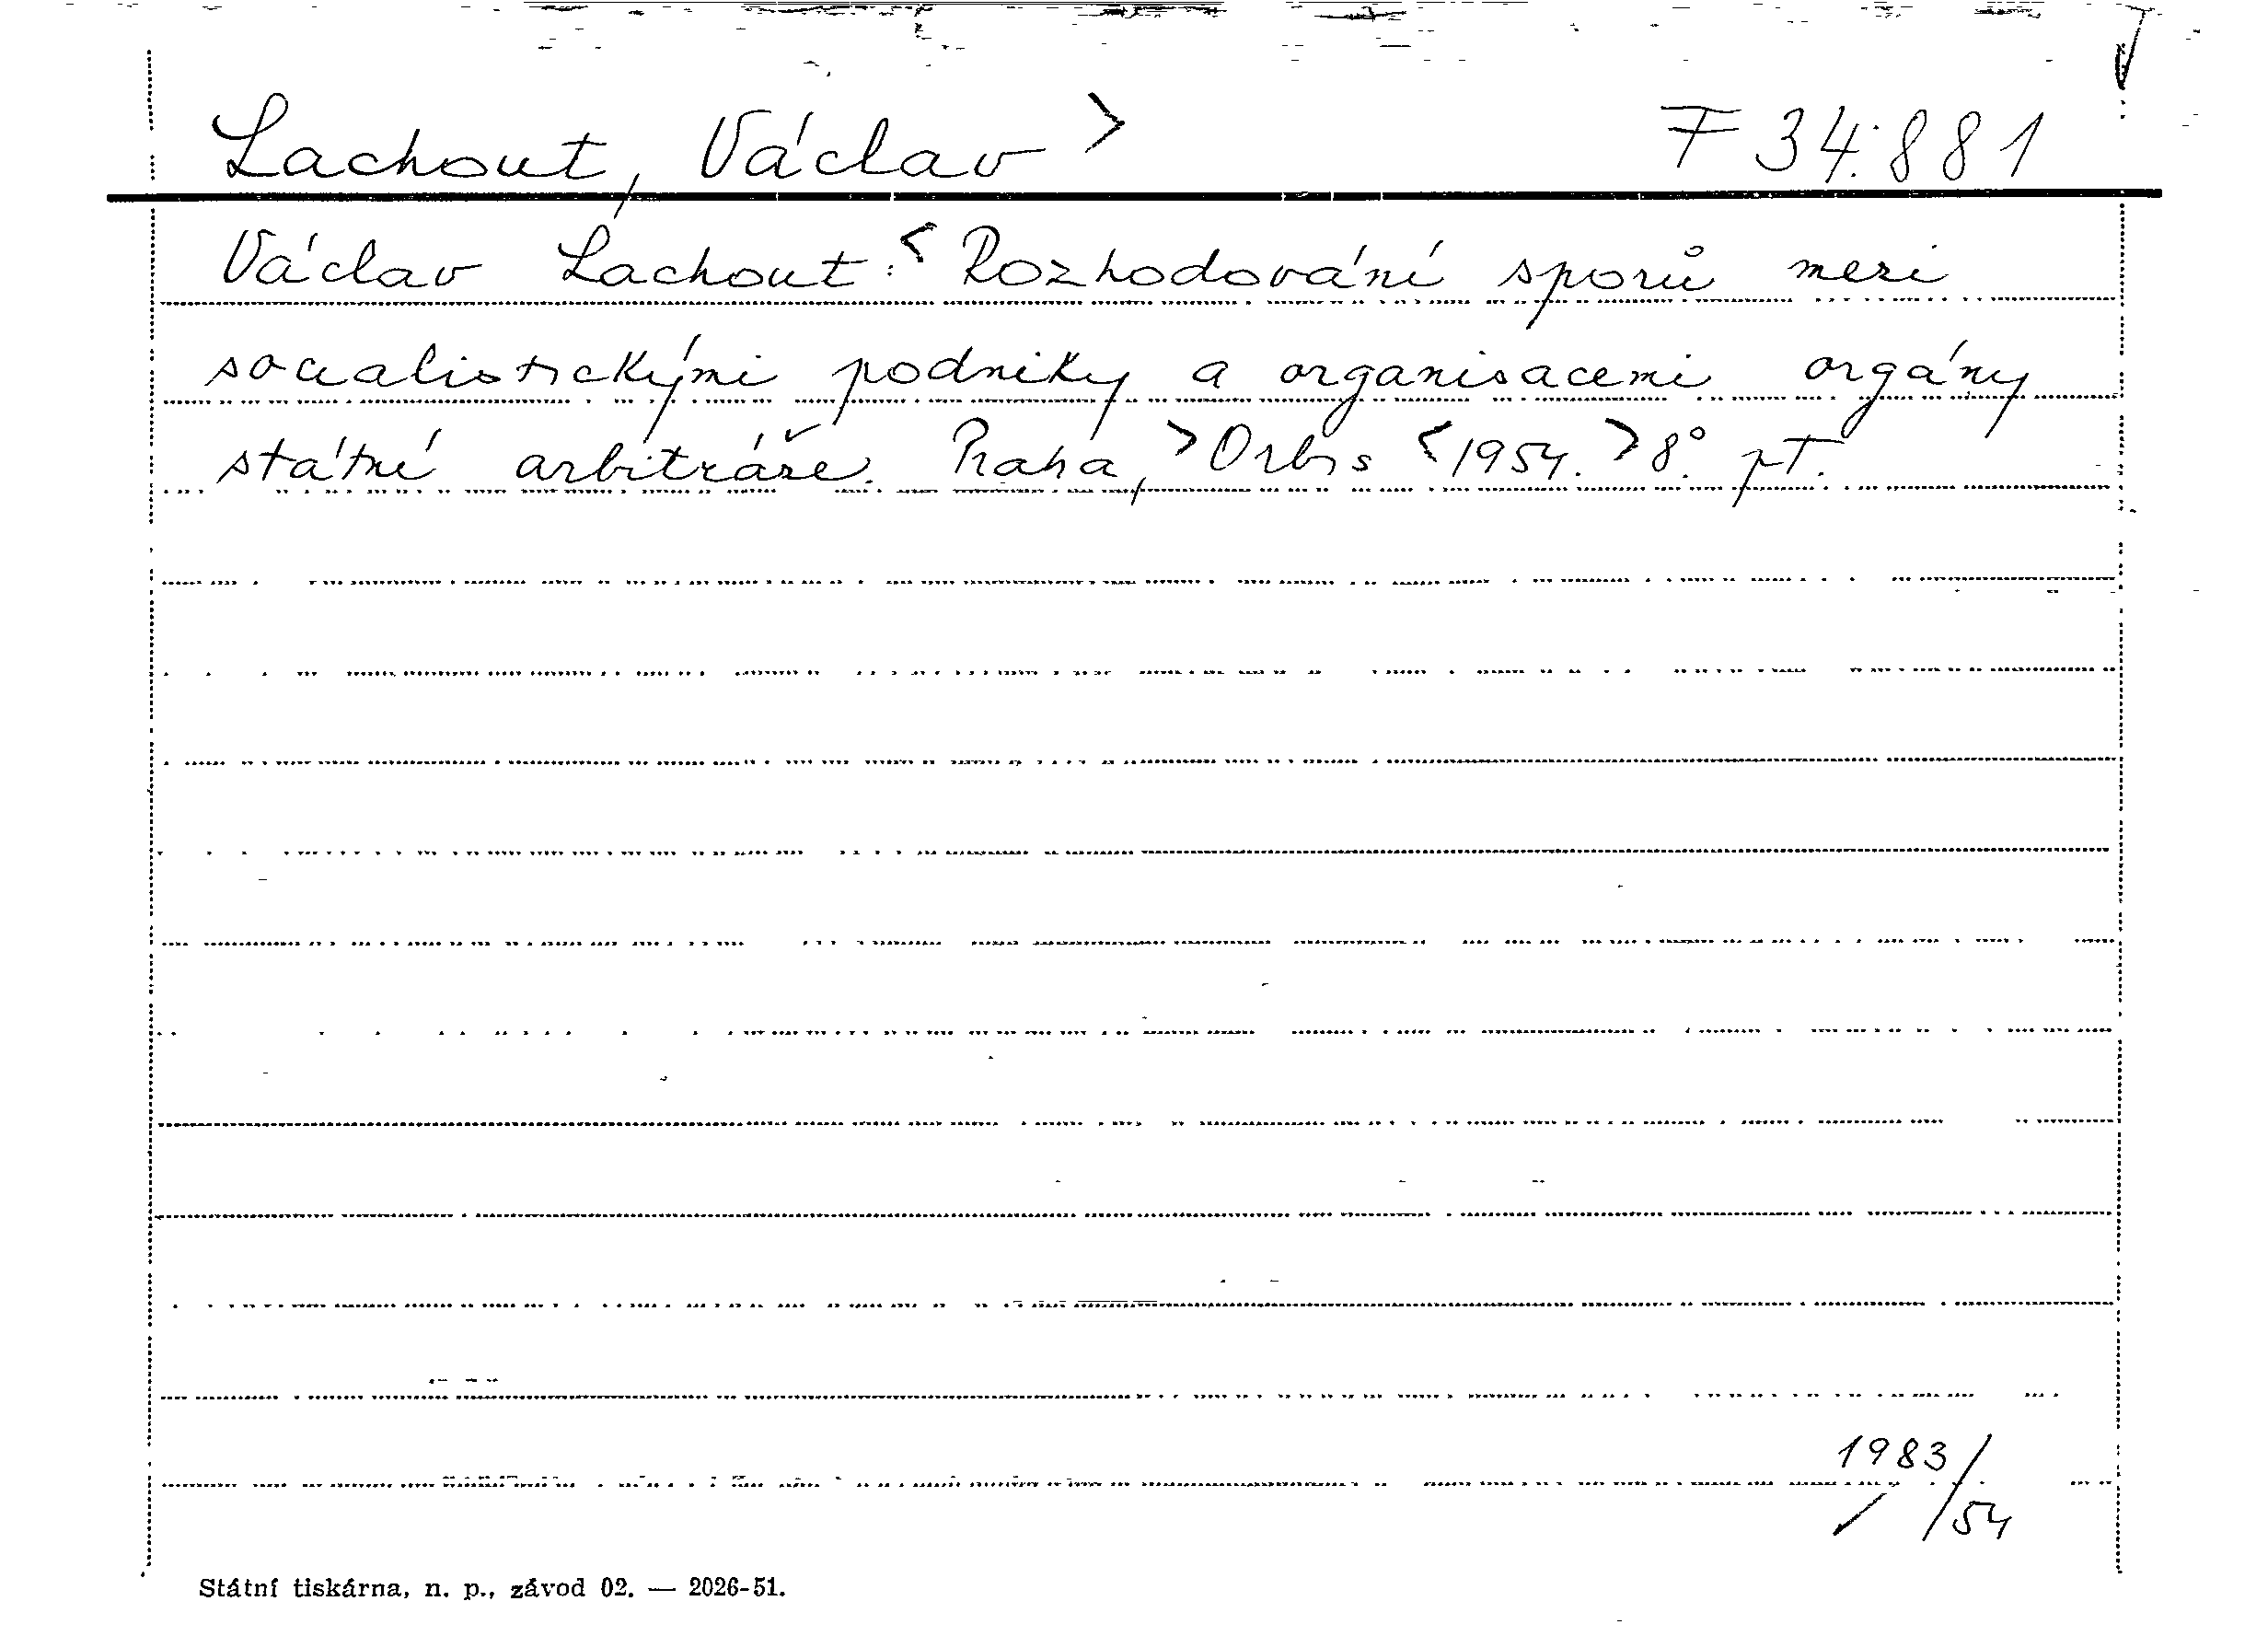 Lachout, Václav > F 34.881
Václav Lachout: < Rozhodování sporů mezi
socialistickými podniky a organisacemi orgány
státní arbitráže. Praha, > Orbis < 1954. > 8°. pT.
1983/54
Státní tiskárna, n. p., závod 02. — 2026-51.